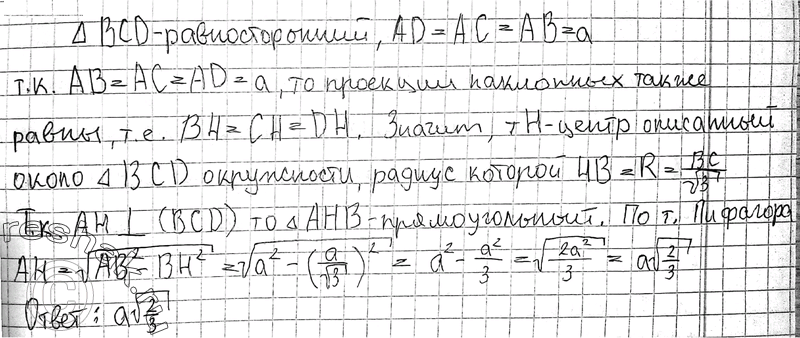 Δ BCD-равносторонний, AD=AC=AB=a
т.к. AB=AC=AD=a, то проекции наклонных также
равны, т.е. BH=CH=DH. Значит, тH-центр описанный
около Δ BCD окружности, радиус которой HB=R=BC/√3
Т.к. AH⊥(BCD) то ΔAHB-прямоугольный. По т. Пифагора
AH=√(AB²-BH²)=√(a²-(a/√3)²)=a²-a²/3=√(2a²/3)=a√(2/3)
Ответ: a√(2/3)